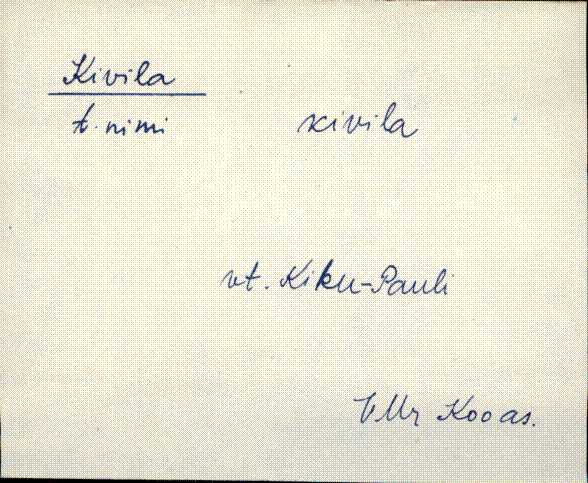 Kivila
t. nimi kivila
vt. Kiku-Pauli
VMr Kooas.